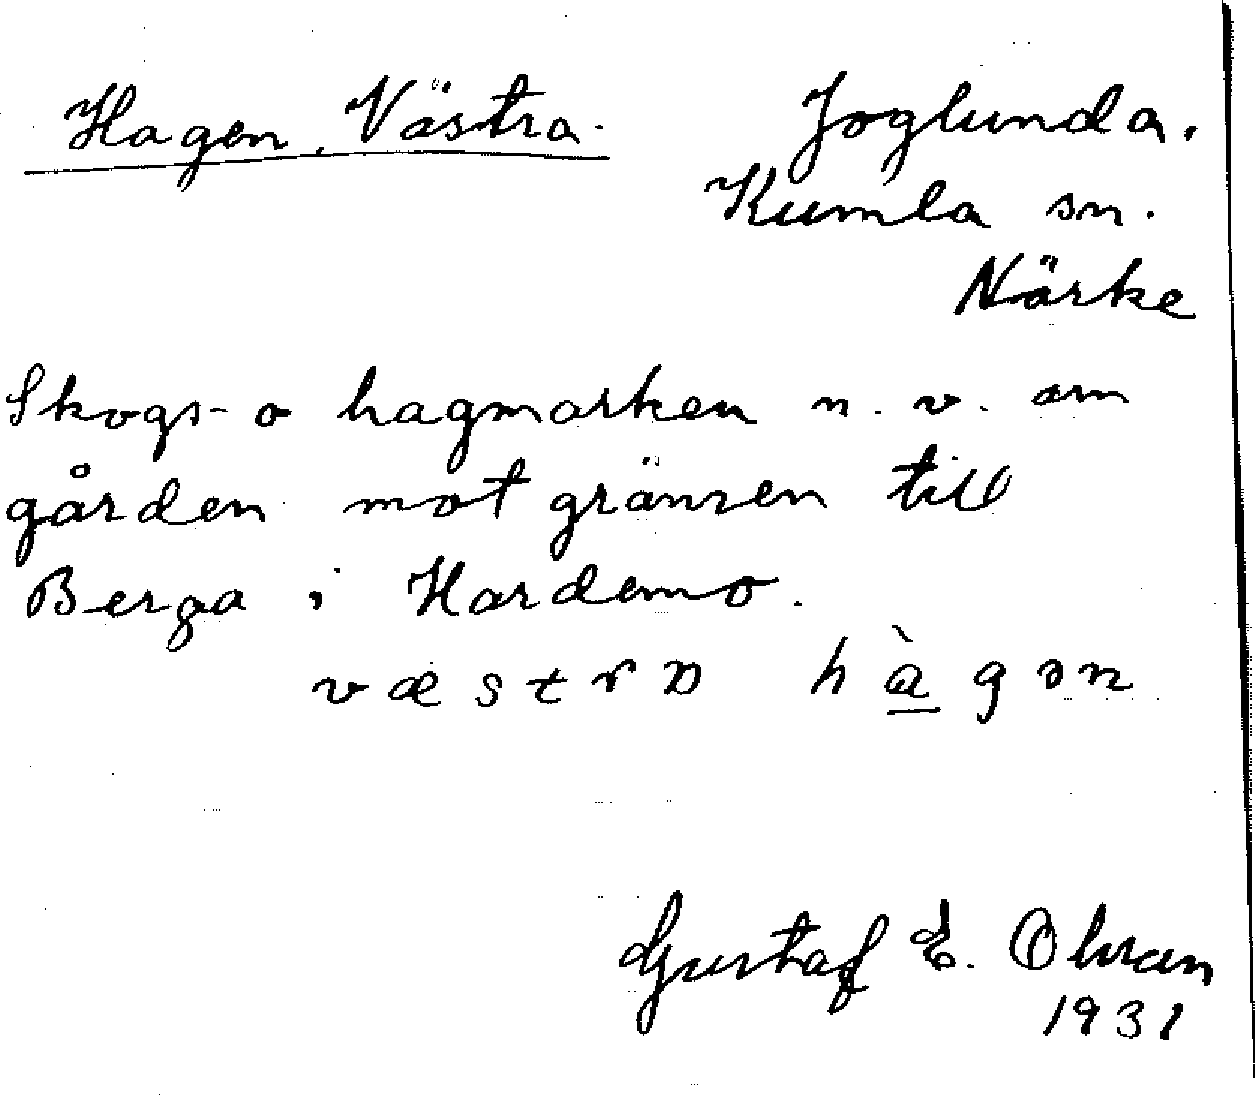 Hagen, Västra.
Joglunda.
Kumla sn.
Närke
Skogs- o hagmarken n.v. om
gården mot gränsen till
Berga i Hardemo.
væstra hàgən
Gustaf E. Olsson
1931